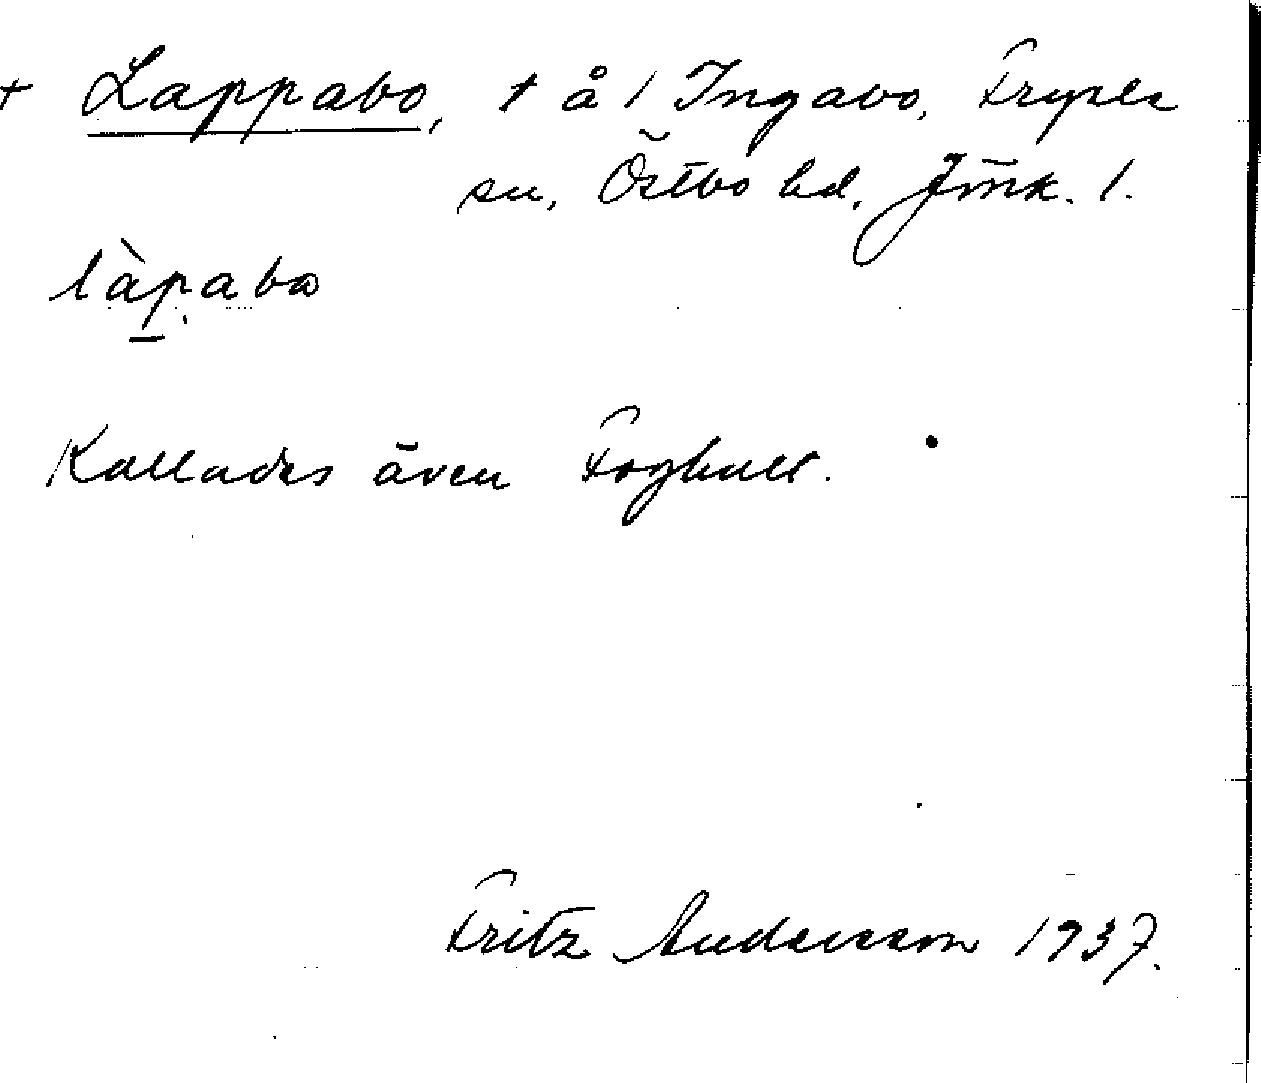 + Lappabo, t å 1 Ingabo, Fryele
sn, Östbo hd, Jmk. l.
làpabo
Kallades även Foghult.
Fritz Andersson 1937.